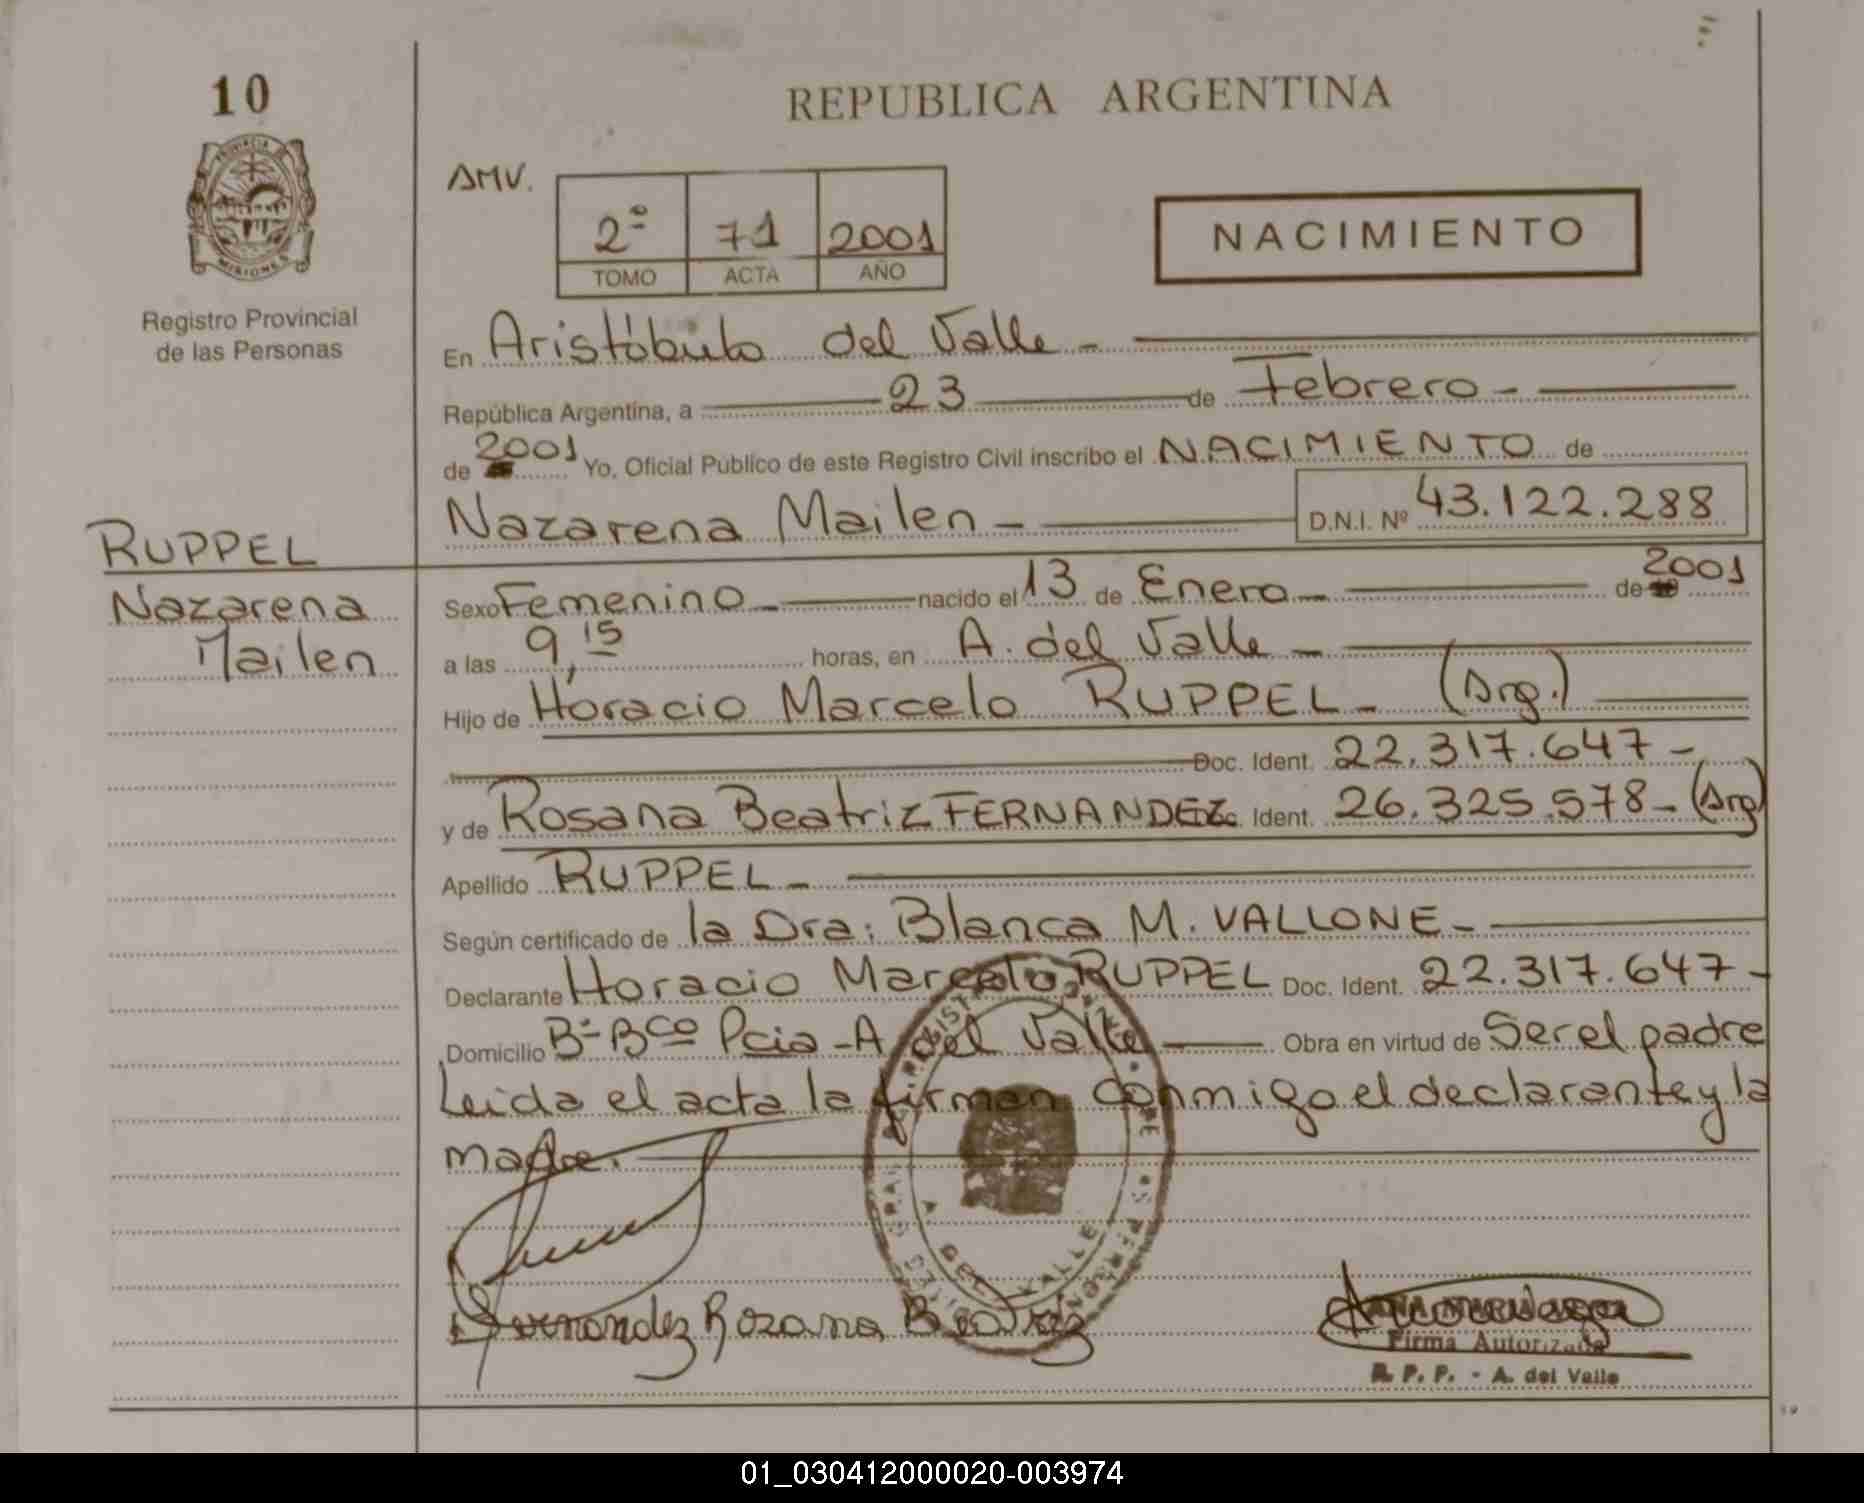 10
REPUBLICA ARGENTINA
PROVINCIA
MISIONES
Registro Provincial
de las Personas
AMV.
2º 71 2001
TOMO ACTA AÑO
NACIMIENTO
En Aristóbulo del Valle -
República Argentina, a 23 de Febrero -
de 2001 Yo, Oficial Público de este Registro Civil inscribo el NACIMIENTO de
Nazarena Mailen - D.N.I. Nº 43.122.288
RUPPEL
Nazarena
Mailen
Sexo Femenino - nacido el 13 de Enero - de 2001
a las 9,15 horas, en A. del Valle -
Hijo de Horacio Marcelo RUPPEL - (Arg.)
Doc. Ident. 22.317.647 -
y de Rosana Beatriz FERNANDEZ Doc. Ident. 26.325.578 - (Arg)
Apellido RUPPEL -
Según certificado de la Dra: Blanca M. VALLONE -
Declarante Horacio Marcelo RUPPEL Doc. Ident. 22.317.647 -
Domicilio Bº Bco Pcia - A del Valle Obra en virtud de Ser el padre
Leida el acta la firman conmigo el declarante y la
madre.
DEL VALLE
Fernandez Rozana Beatriz
Firma Autorizada
R. P. P. - A. del Valle
01_030412000020-003974